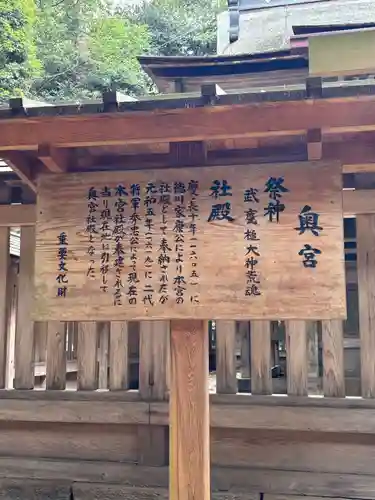 奥宮
祭神
武甕槌大神荒魂
社殿
慶長年(一六〇五)に
徳川家康公により本宮の
社殿として奉納されたが
元和五年(一六一九)に二代
将軍参忠公によって現在の
本宮社殿が奉建されるに
当り現在地に引移して
奥宮社殿となった
重要文化財